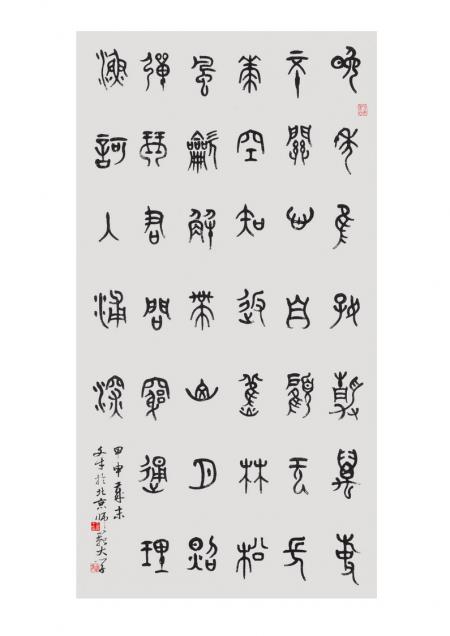 晚年隹好靜萬事
不關心自顧无長
策空知返舊林松
風龡解帶山月照
彈琴君問窮通理
漁訶入浦深
甲申歲末
於北京師範大學